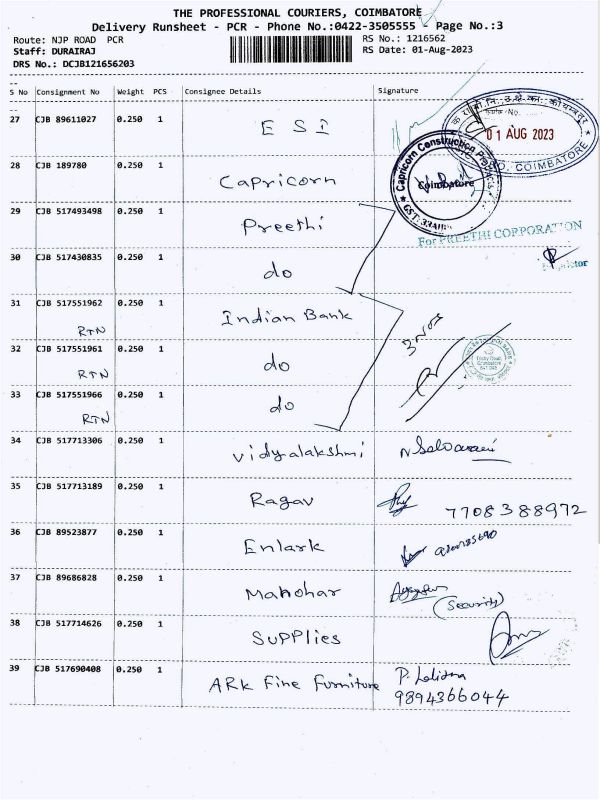 THE PROFESSIONAL COURIERS, COIMBATORE
Delivery Runsheet - PCR - Phone No.:0422-3505555 - Page No.:3
Route: NJP ROAD PCR
RS No.: 1216562
Staff: DURAIRAJ
RS Date: 01-Aug-2023
DRS No.: DCJB121656203
S No Consignment No Weight PCS Consignee Details Signature
27 CJB 89611027 0.250 1 ESI
01 AUG 2023
COIMBATORE
28 CJB 189780 0.250 1 Capricorn
Capricorn Construction
Coimbatore
29 CJB 517493498 0.250 1 Preethi
For PREETHI CORPORATION
30 CJB 517430835 0.250 1 do
31 CJB 517551962 0.250 1 Indian Bank
RTN
3 Nos
32 CJB 517551961 0.250 1 do
RTN
33 CJB 517551966 0.250 1 do
RTN
34 CJB 517713306 0.250 1 Vidyalakshmi
35 CJB 517713189 0.250 1 Ragav 7708388972
36 CJB 89523877 0.250 1 Enlark
37 CJB 89686828 0.250 1 Manohar
(Security)
38 CJB 517714626 0.250 1 Supplies
39 CJB 517690408 0.250 1 ARK Fine Furniture
9894366044